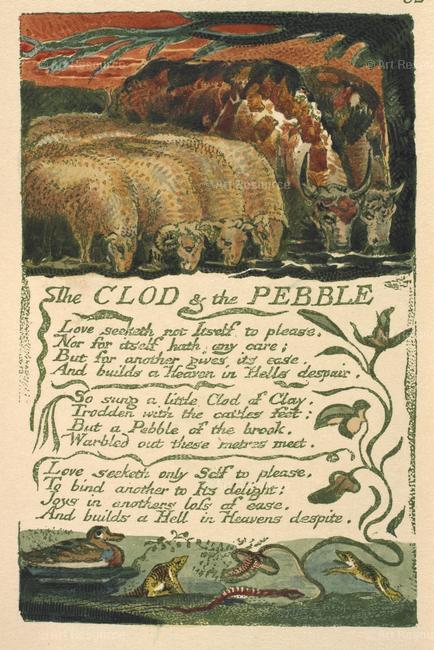 The CLOD & the PEBBLE
Love seeketh not Itself to please.
Nor for itself hath any care;
But for another gives its ease.
And builds a Heaven in Hells despair.
So sung a little Clod of Clay.
Trodden with the cattles feet:
But a Pebble of the brook.
Warbled out these metres meet.
Love seeketh only Self to please,
To bind another to Its delight:
Joys in anothers loss of ease.
And builds a Hell in Heavens despite.